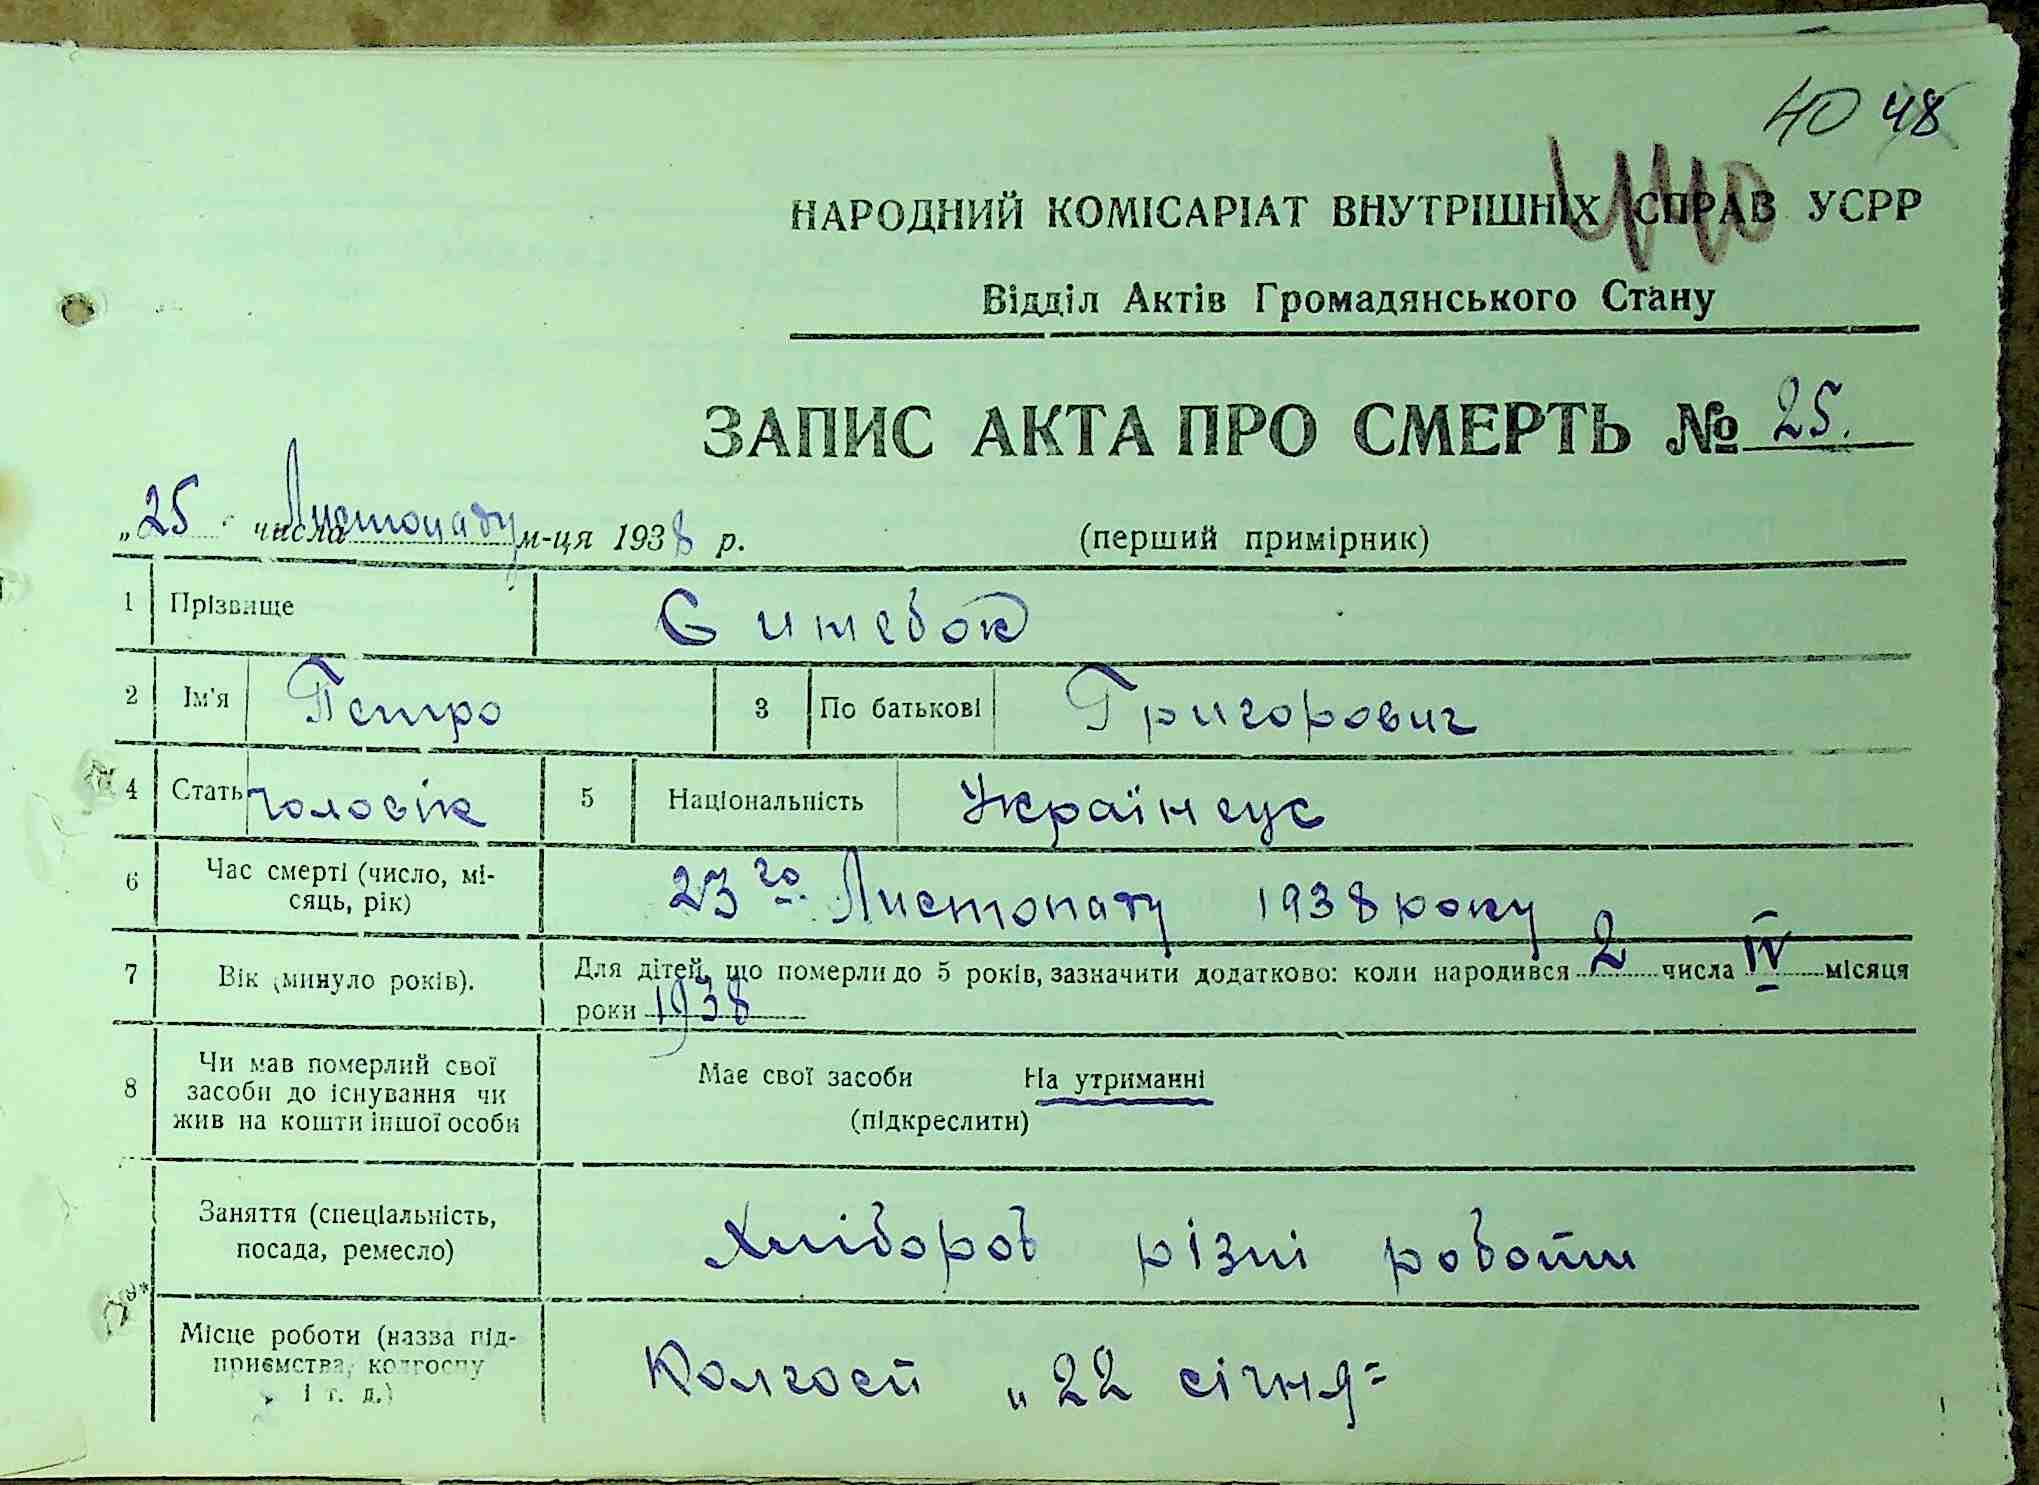 40 48
НАРОДНИЙ КОМІСАРІАТ ВНУТРІШНІХ СПРАВ УСРР
Відділ Актів Громадянського Стану
ЗАПИС АКТА ПРО СМЕРТЬ № 25.
„25 числа Листопаду м-ця 1938 р. (перший примірник)
1 Прізвище Ситебок
2 Ім'я Петро 3 По батькові Григорович
4 Стать чоловік 5 Національність Українець
6 Час смерті (число, мі-
сяць, рік) 23го Листопаду 1938 року
7 Вік (минуло років). Для дітей, що померли до 5 років, зазначити додатково: коли народився 2 числа IV місяця
роки 1938
8 Чи мав померлий свої
засоби до існування чи
жив на кошти іншої особи
Має свої засоби На утриманні
(підкреслити)
Заняття (спеціальність,
посада, ремесло) Хлібороб різні роботи
9*
Місце роботи (назва під-
приємства, колгоспу
і т. д.) Колгосп „22 січня"